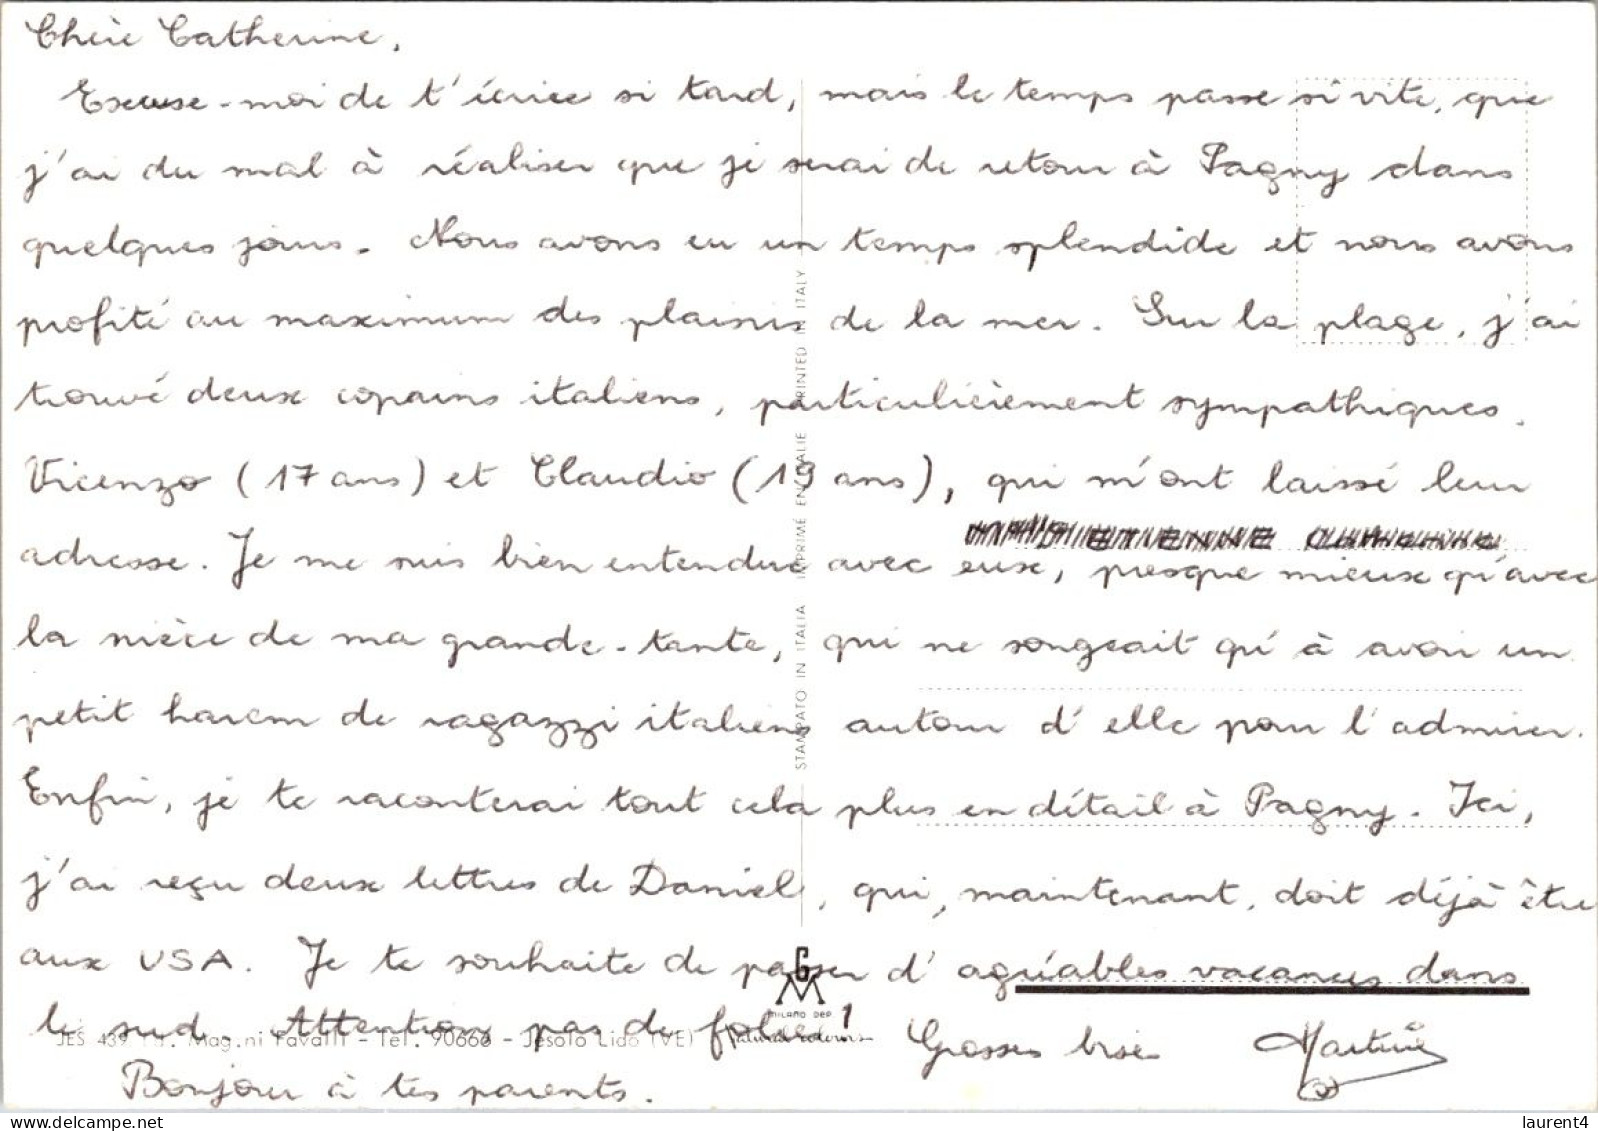 Chère Catherine,
Excuse-moi de t'écrire si tard, mais le temps passe si vite, que
j'ai du mal à réaliser que je serai de retour à Pagny dans
quelques jours. Nous avons eu un temps splendide et nous avons
profité au maximum des plaisirs de la mer. Sur la plage, j'ai
trouvé deux copains italiens, particulièrement sympathiques,
Vicenzo (17 ans) et Claudio (19 ans), qui m'ont laissé leur
adresse. Je me suis bien entendue avec eux, presque mieux qu'avec
la nièce de ma grande-tante, qui ne songeait qu'à avoir un
petit harem de ragazzi italiens autour d'elle pour l'admirer.
Enfin, je te raconterai tout cela plus en détail à Pagny. Ici,
j'ai reçu deux lettres de Daniel, qui, maintenant, doit déjà être
aux USA. Je te souhaite de passer d'agréables vacances dans
le sud. Attention, pas de folies! Grosses bises Martine
Bonjour à tes parents.
STAMPATO IN ITALIA IMPRIMÉ EN ITALIE PRINTED IN ITALY
MILANO DEP.
JES 439 Ed. Mag.ni Favalli - Tel. 90666 - Jesolo Lido (VE) natural colours
laurent4